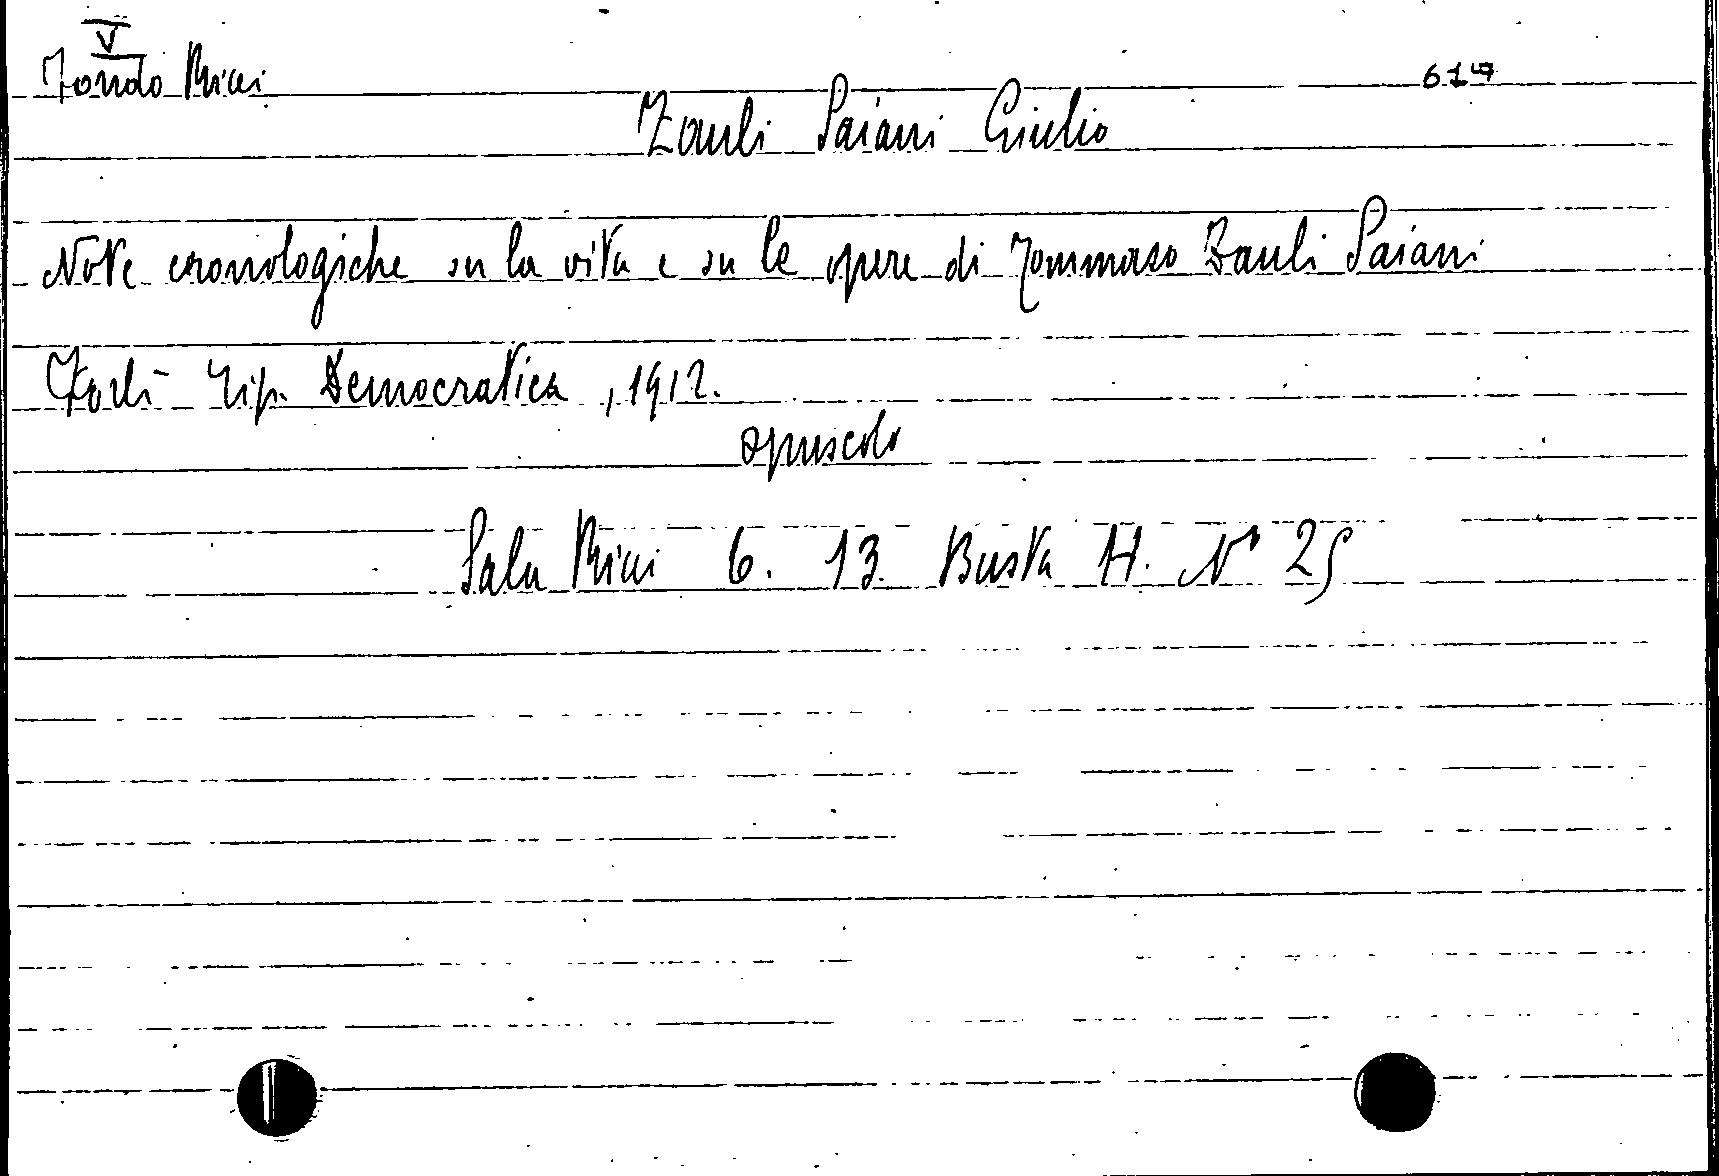 V
Fondo Ricci 617
Zauli Saiani Giulio
Note cronologiche su la vita e su le opere di Tommaso Zauli Saiani
Forlì Tip. Democratica, 1912.
opuscolo
Sala Ricci 6. 13. Busta H. N° 25